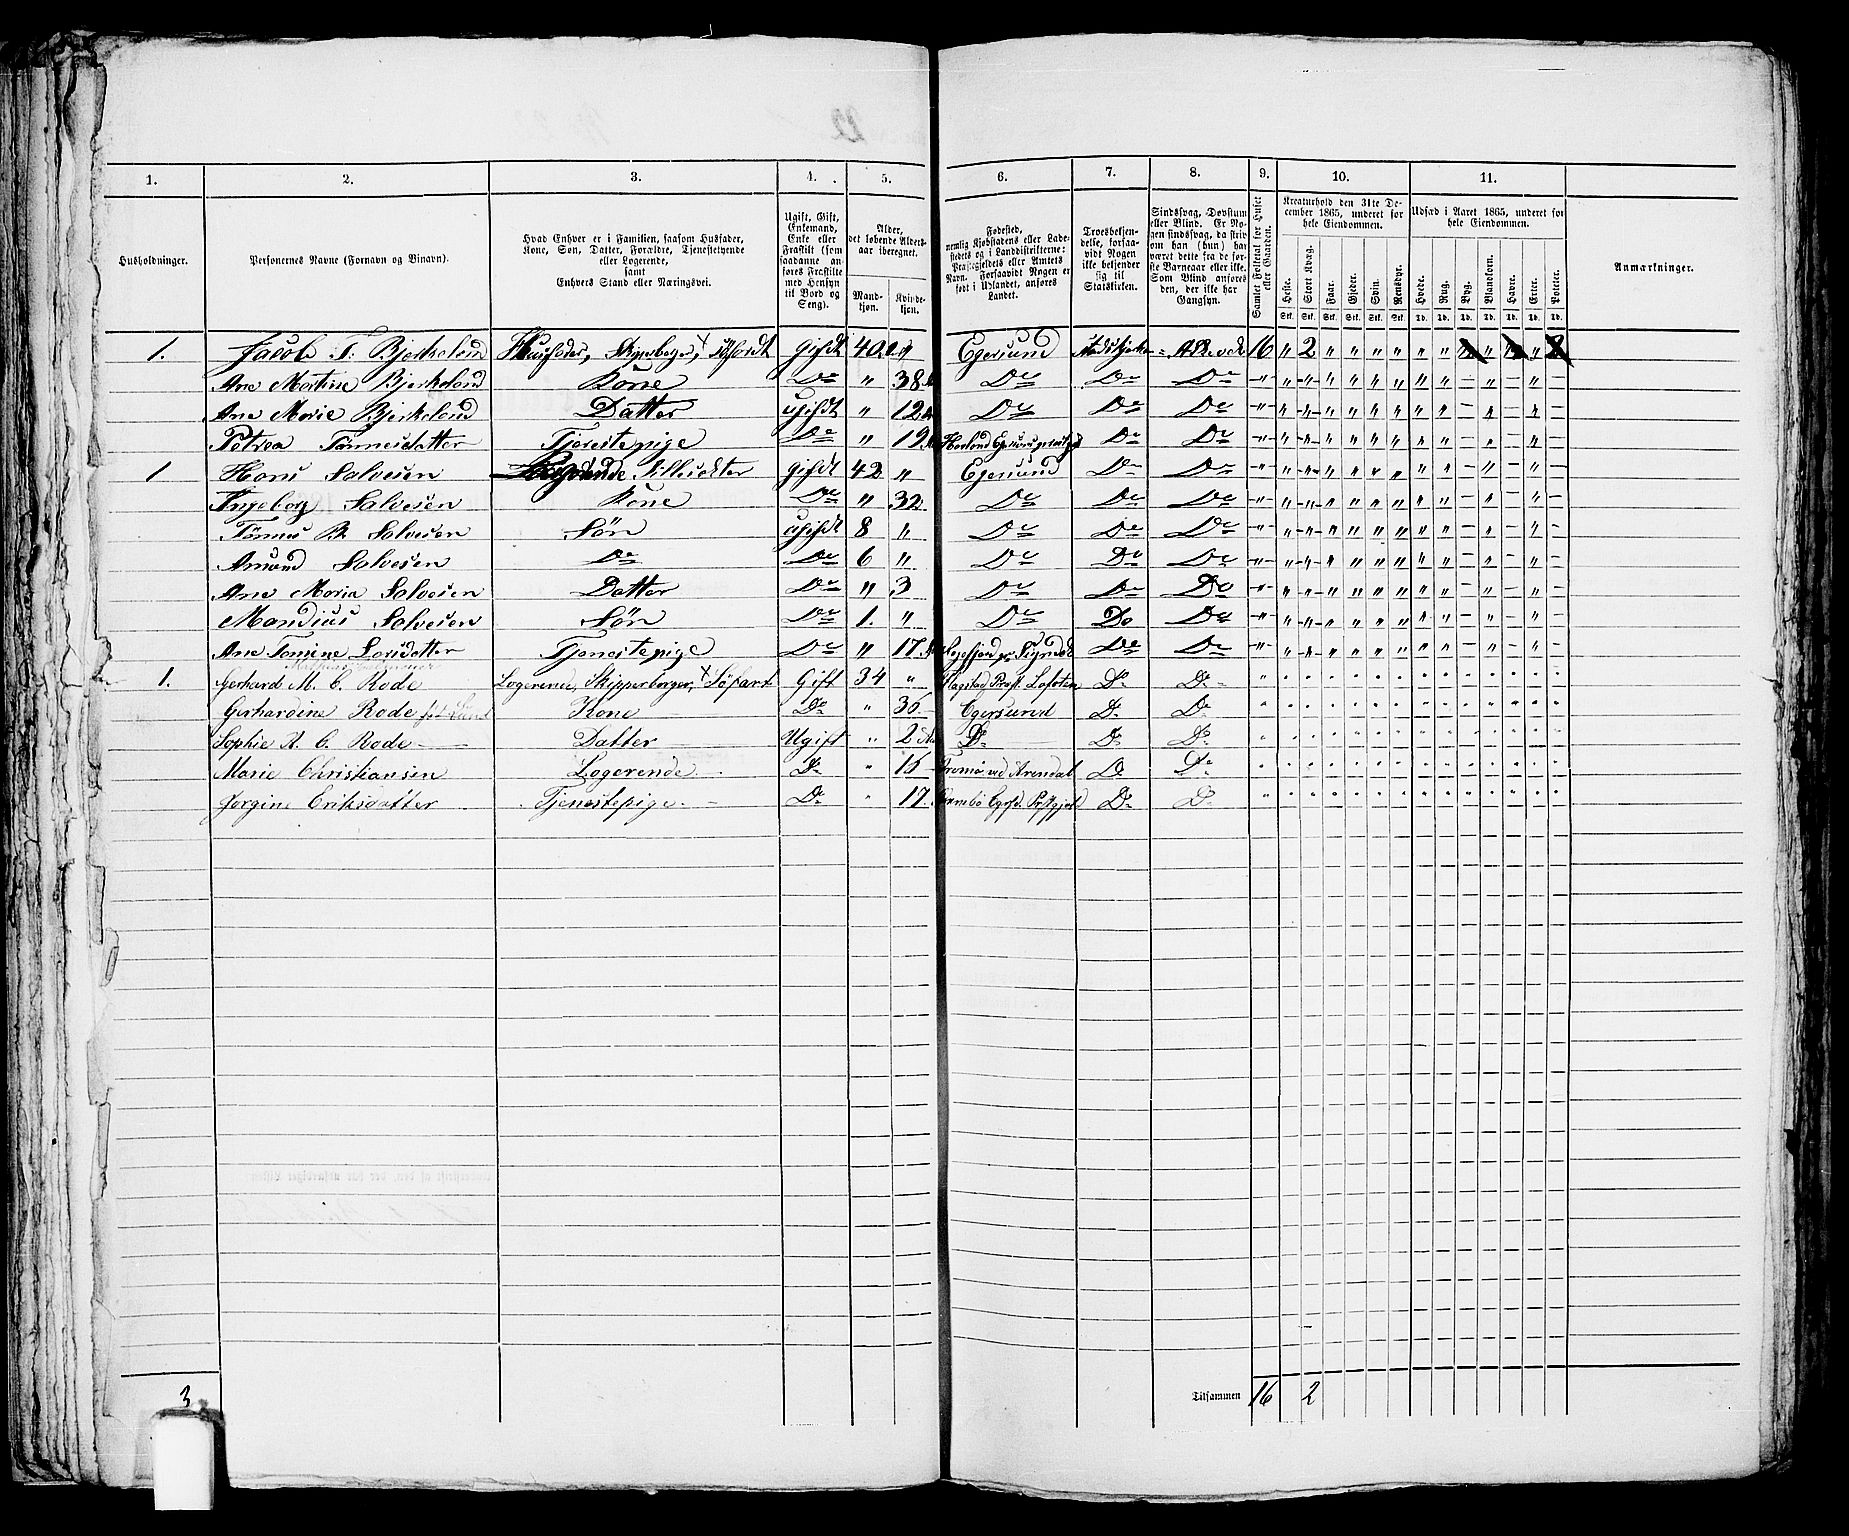 1. 2. 3. 4. 5. 6. 7. 8. 9. 10. 11.
Husholdninger.
Personernes Navne (Fornavn og Binavn).
Hvad Enhver er i Familien, saasom Husfader, Kone, Søn, Datter, Forældre, Tjenestetyende eller Logerende, samt Enhvers Stand eller Næringsvei.
Ugift, Gift, Enkemand, Enke eller Fraskilt (som saadanne anføres Fraskilte med Hensyn til Bord og Seng).
Alder, det løbende Alders-aar iberegnet.
Mandkjøn. Kvindekjøn.
Fødested, nemlig Kjøbstadens eller Ladestedets og i Landdistrikterne: Præstegjeldets eller Amtets Navn. Forsaavidt Nogen er født i Udlandet, anføres Landet.
Troesbekjendelse, forsaavidt Nogen ikke bekjender sig til Statskirken.
Sindssvag, Døvstum eller Blind. Er Nogen sindssvag, da skrives om han (hun) har været dette fra de første Barneaar eller ikke. Som Blind anføres den, der ikke har Gangsyn.
Samlet Folketal for Huset eller Gaarden.
Kreaturhold den 31te December 1865, underet for hele Eiendommen.
Heste. Stort Kvæg. Faar. Gjeder. Svin. Rensdyr.
Udsæd i Aaret 1865, underet for hele Eiendommen.
Hvede. Rug. Byg. Blandkorn. Havre. Erter. Poteter.
Anmærkninger.
1. Jacob T. Bjerkeland Huusfader, Skipsborger, Gifdt 40 " Egersund 16 " 2 " " " " " "
Ane Martine Bjerkeland Kone Do " 38 Do Do Do
Ane Marie Bjerkeland Datter ugifdt " 12 Do Do Do
Petrea Tønnesdatter Tjenestepige Do " 19 Do Do
1 Hans Salvesen Gifdt 42 " Egersund Do Do
Ingeborg Salvesen Kone Do " 32 Do Do Do
Tønnes B. Salvesen Søn ugifdt 8 " Do Do Do
Amund Salvesen Do Do 6 " Do Do Do
Ane Maria Salvesen Datter Do " 3 Do Do Do
Mandius Salvesen Søn Do 1. " Do Do Do
Ane Tomine Larsdatter Tjenestepige Do " 17 Do Do
1. Gerhard M. C. Rode Logerende, Skipperborger, Søfart Gift 34 " Flagstad Præst. Lofoten Do Do
Gerhardine Rode Kone Do " 36 Egersund Do Do
Sophie A. C. Rode Datter Ugift " 2 Do Do Do
Marie Christiansen Logerende Do " 16 Tromø ved Arendal Do Do
Jørgine Eriksdatter Tjenestepige Do " 17 Do Do
3 Tilsammen 16 2